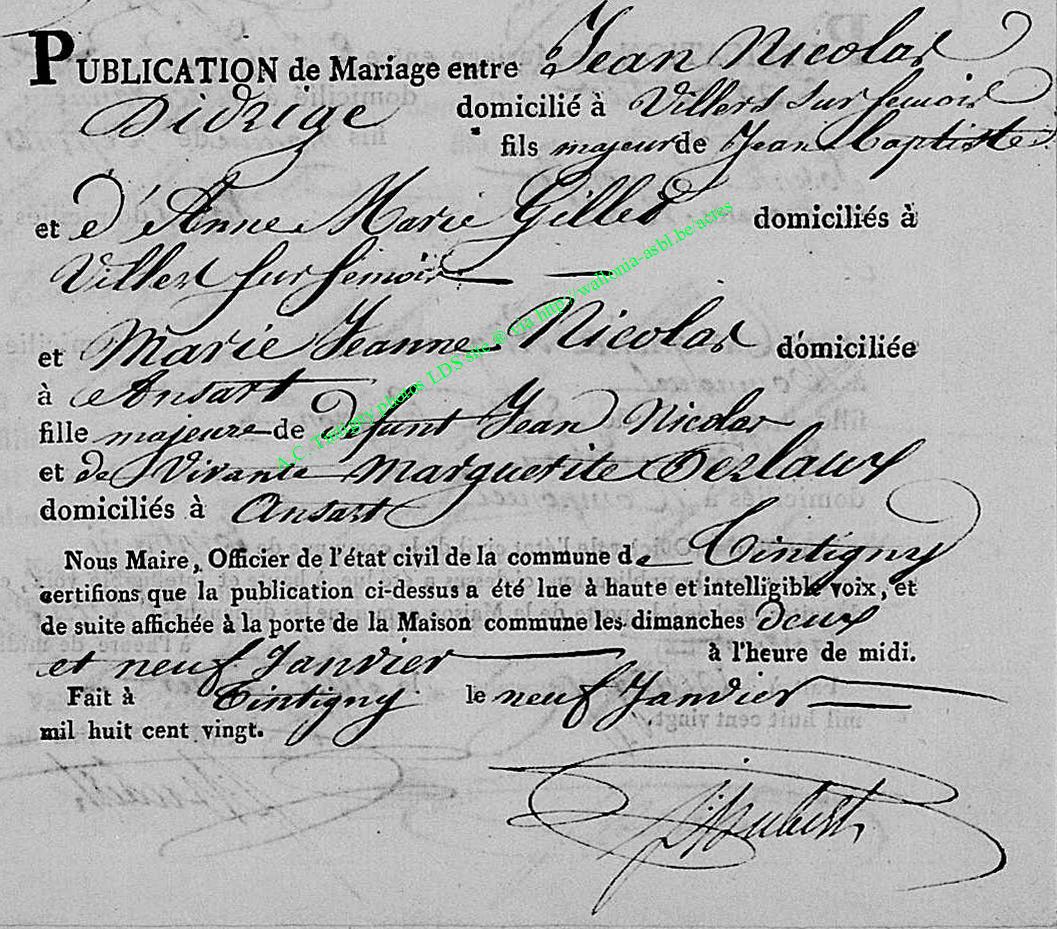 PUBLICATION de Mariage entre Jean Nicolas
Didrige domicilié à Villers sur semois
fils majeur de Jean Baptiste
et d'Anne Marie Gillet domiciliés à
Villers sur semois
et Marie Jeanne Nicolas domiciliée
à Ansart
fille majeure de défunt Jean Nicolas
et de Vivante Marguerite Terlaux
domiciliés à Ansart
Nous Maire, Officier de l'état civil de la commune de Tintigny
certifions que la publication ci-dessus a été lue à haute et intelligible voix, et
de suite affichée à la porte de la Maison commune les dimanches deux
et neuf Janvier à l'heure de midi.
Fait à Tintigny le neuf Janvier
mil huit cent vingt.
A.C. Tintigny photos LDS site @ via http://wallonia-asbl.be/actes